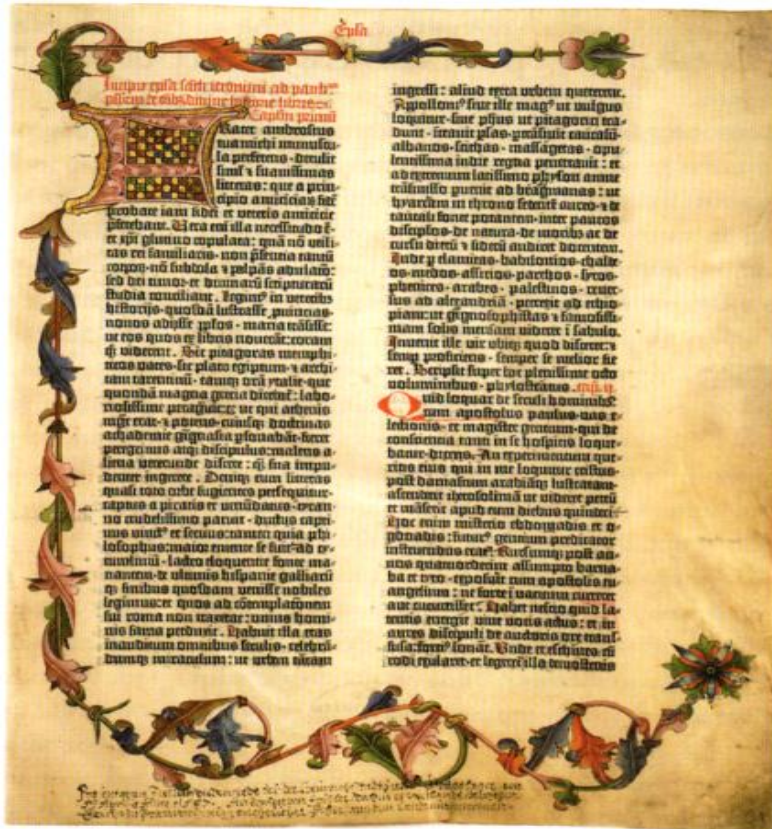 Epl̃a
Incipit epistola sancti iheronimi ad
Capl̃m primũ
Frater ambrosius
tua michi munuscu-
la perferens · detulit
simul et suavissimas
litteras : que a prin-
cipio amiciciaꝝ fidẽ
probate iam fidei et veteris amicicie
p̃ferebant. Vera eñ illa necessitudo ẽ·
et xp̃i glutino copulata : quã nõ utili-
tas rei familiaris · nõn p̃sencia tantũ
corporũ · nõ subdola et palpãs adulatõ ·
sed dei timor · et divinarũ scripturarũ
studia conciliant. Legim⁹ in veteribus
historijs · quosdã lustrasse ꝓuincias ·
novos adijsse ppl̃os · maria trãsisse :
ut eos quos ex libris noverãt : coram
qꝫ viderent. Sic pitagoras memphi-
ticos vates · sic plato egiptum · et archi-
tam tarentinũ · eamqꝫ orã ytalie · que
quondã magna grecia dicebat̃ : labo-
riosissime peragravit : et ut qui athenis
mgr̃ erat · et potens · cuiusqꝫ doctrinas
achademie gignasia ꝑsonabãt · fieret
peregrinus atqꝫ discipulus : malens a-
liena verecunde discere : qꝫ sua impu-
denter ingerere. Deniqꝫ cum litteras
quasi toto orbe fugientes persequitur ·
captus a piratis et venũdatus · tyran-
no crudelissimo paruit · ductus capti-
vus vinct⁹ et servus : tamen quia phi-
losophus : maior emente se fuit · ad ty-
tumliviũ · lacteo eloquentie fonte ma-
nantem · de ultimis hispanie galliarũ
qꝫ finibus quosdam venisse nobiles
legimus : et quos ad cõtemplacõnem
sui roma non traxerat : unius homi-
nis fama perduxit. Habuit illa etas
inauditum omnibus seculis · celebrã-
dumqꝫ miraculum : ut urbem tantam
ingressi : aliud extra urbem quererent.
Appolloni⁹ sive ille mag⁹ ut vulgus
loquitur · sive ph̃us ut pitagorici tra-
dunt · intravit ꝑsas · ꝑtrãsivit caucasũ ·
albanos · scithas · massagetas · opu-
lentissima indie regna penetravit : et
ad extremum latissimo physon amne
trãsmisso ꝑvenit ad bragmanas : ut
hyarcam in throno sedentẽ aureo · et de
tantali fonte potantem · inter paucos
discipl̃os · de natura · de moribꝫ ac de
cursu dierũ et siderũ audiret docentem.
Inde ꝑ elamitas · babilonios · chalde-
os · medos · assirios · parthos · syros ·
phenices · arabes · palestinos · rever-
sus ad alexandriã · perrexit ad ethio-
piam : ut gignosophistas et famosissi-
mam solis mensam videret ĩ sabulo.
Invenit ille vir ubiqꝫ quod disceret : et
semꝑ proficiens · semper se melior fie-
ret. Scripsit super hoc plenissime octo
voluminibus · phylostratus. capl̃m ij
Quid loquar de seculi hominibꝫ :
cum apostolus paulus · vas e-
lectionis · et magister gentium · qui de
consciencia tanti in se hospitis loque-
batur · dicens. An experimentum que-
ritis eius qui in me loquitur cristus ·
post damascum arabiãqꝫ lustratam ·
ascenderit iherosolimã ut videret petrũ
et mãserit apud eum diebus quindeci.
Hoc enim misterio ebdomadis et o-
gdoadis : futur⁹ gentium predicator
instruendus erat. Rursumqꝫ post an-
nos quatuordecim assumpto barna-
ba et tyto · exposuit cum apostolis eu-
angelium : ne forte ĩ vacuum curreret
aut cucurrisset. Habet nescio quid la-
tentis energie vive vocis actus : et in
aures discipuli de auctoris ore transf-
fusa : forti⁹ sonat. Unde et eschines cũ
rodi exularet · et legeret̃ illa demostenis